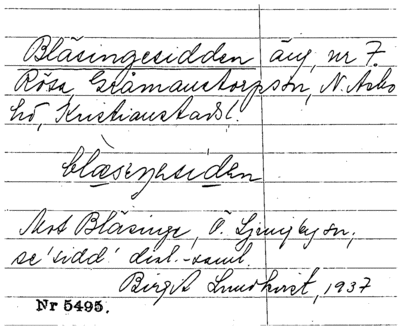 Bläsingesidden äng, nr 7.
Rösa, Gråmanstorpssn, N. Åsbo
hd, Kristianstads l.
blæseŋesidən
Mot Bläsinge, Ö. Ljungby sn;
se 'sidd' dial.-saml.
Birgit Lundkvist, 1937
Nr 5495.